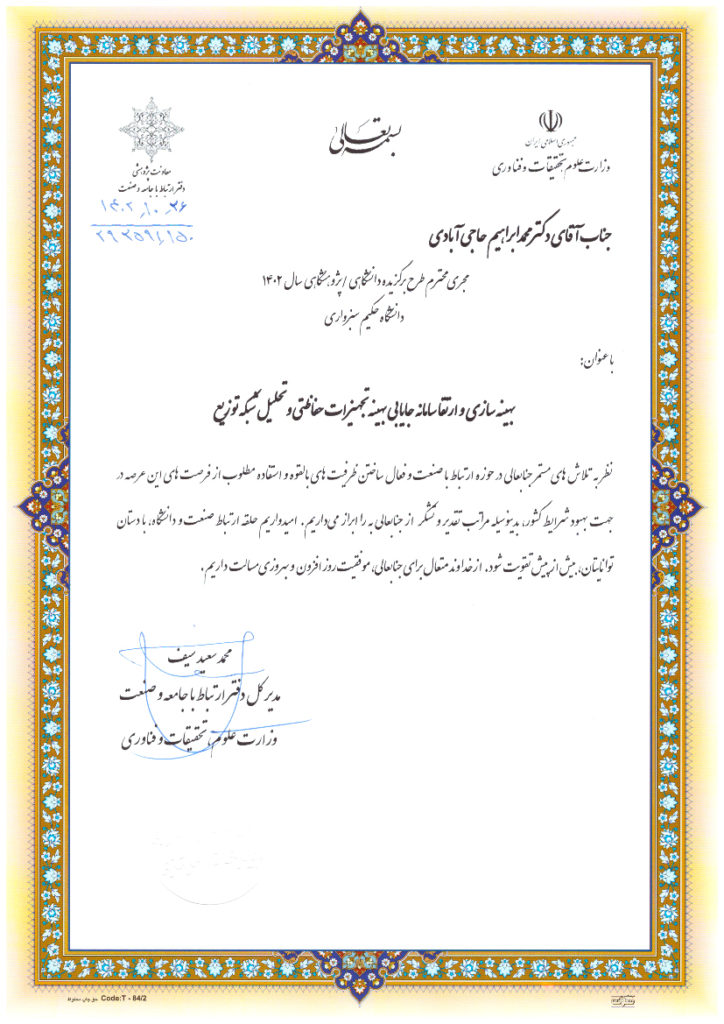 بسمه تعالی
جمهوری اسلامی ایران
وزارت علوم، تحقیقات و فناوری
معاونت پژوهشی
دفتر ارتباط با جامعه و صنعت
۱۴۰۲٫۱۰٫۲۶
۲۹۳۵۹۱٫۱۵۰
جناب آقای دکتر محمد ابراهیم حاجی آبادی
مجری محترم طرح برگزیده دانشگاهی / پژوهشگاهی سال ۱۴۰۲
دانشگاه حکیم سبزواری
با عنوان:
بهینه سازی و ارتقا سامانه جایابی بهینه تجهیزات حفاظتی و تحلیل شبکه توزیع
نظر به تلاش های مستمر جنابعالی در حوزه ارتباط با صنعت و فعال ساختن ظرفیت های بالقوه و استفاده مطلوب از فرصت های این عرصه در
جهت بهبود شرایط کشور، بدینوسیله مراتب تقدیر و تشکر از جنابعالی به را ابراز می‌داریم. امیدواریم حلقه ارتباط صنعت و دانشگاه، با دستان
توانایتان، بیش از پیش تقویت شود. از خداوند متعال برای جنابعالی، موفقیت روز افزون و بهروزی مسالت داریم.
محمد سعید سیف
مدیر کل دفتر ارتباط با جامعه و صنعت
وزارت علوم، تحقیقات و فناوری
حق چاپ محفوظ Code:T - 84/2